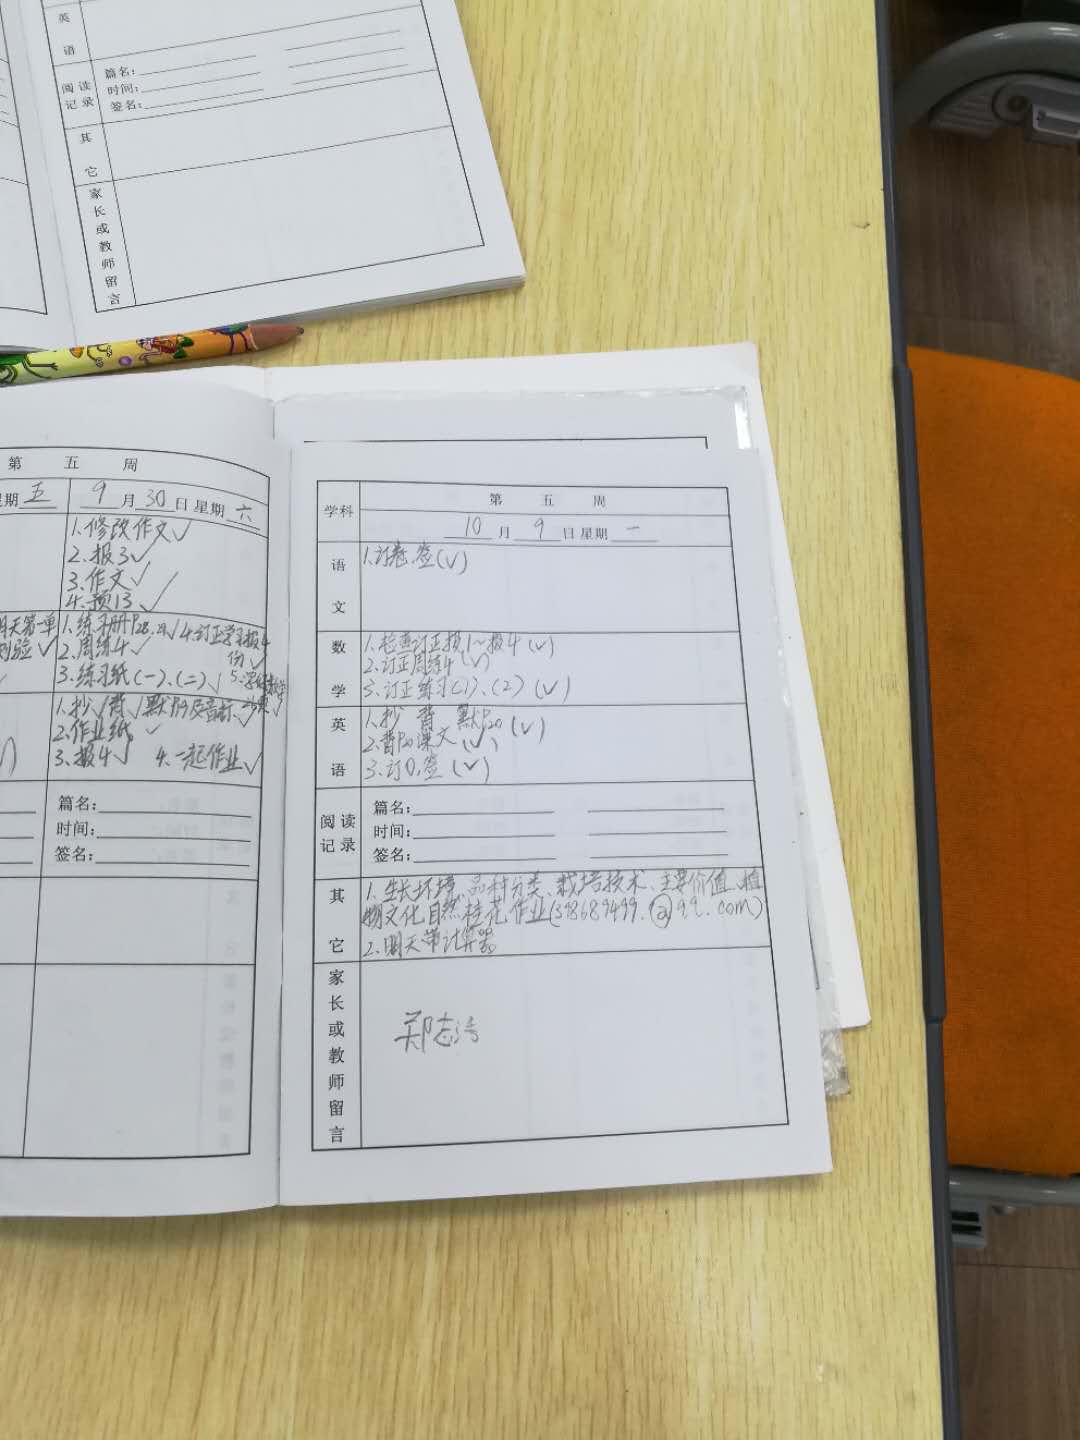 英
语
阅读
记录
篇名:
时间:
签名:
其
它
家长或教师留言
第 五 周
期 五
9 月 30 日 星期 六
1.修改作文✓
2.报3✓
3.作文✓
4.预13 ✓
明天第一单
测验✓
1.练习册P28.29✓ 4.订正学习报4
份✓
2.周练4✓
3.练习纸(一)、(二)✓
1.抄✓背✓默P19及音标✓
2.作业纸 ✓
3.报4✓ 4.一起作业✓
篇名:
时间:
签名:
学科
第 五 周
10 月 9 日 星期 一
语
文
1.订卷.签(✓)
数
学
1.检查订正报1~报4(✓)
2.订正周练4(✓)
3.订正练习(1)、(2)(✓)
英
语
1.抄 背 默P20(✓)
2.背P20课文(✓)
3.订0.签(✓)
阅读
记录
篇名:
时间:
签名:
其
它
1.生长环境、品种分类、栽培技术、主要价值、植
物文化自然桂花作业(398689499.@qq.com)
2.明天带计算器
家长或教师留言
郑志涛